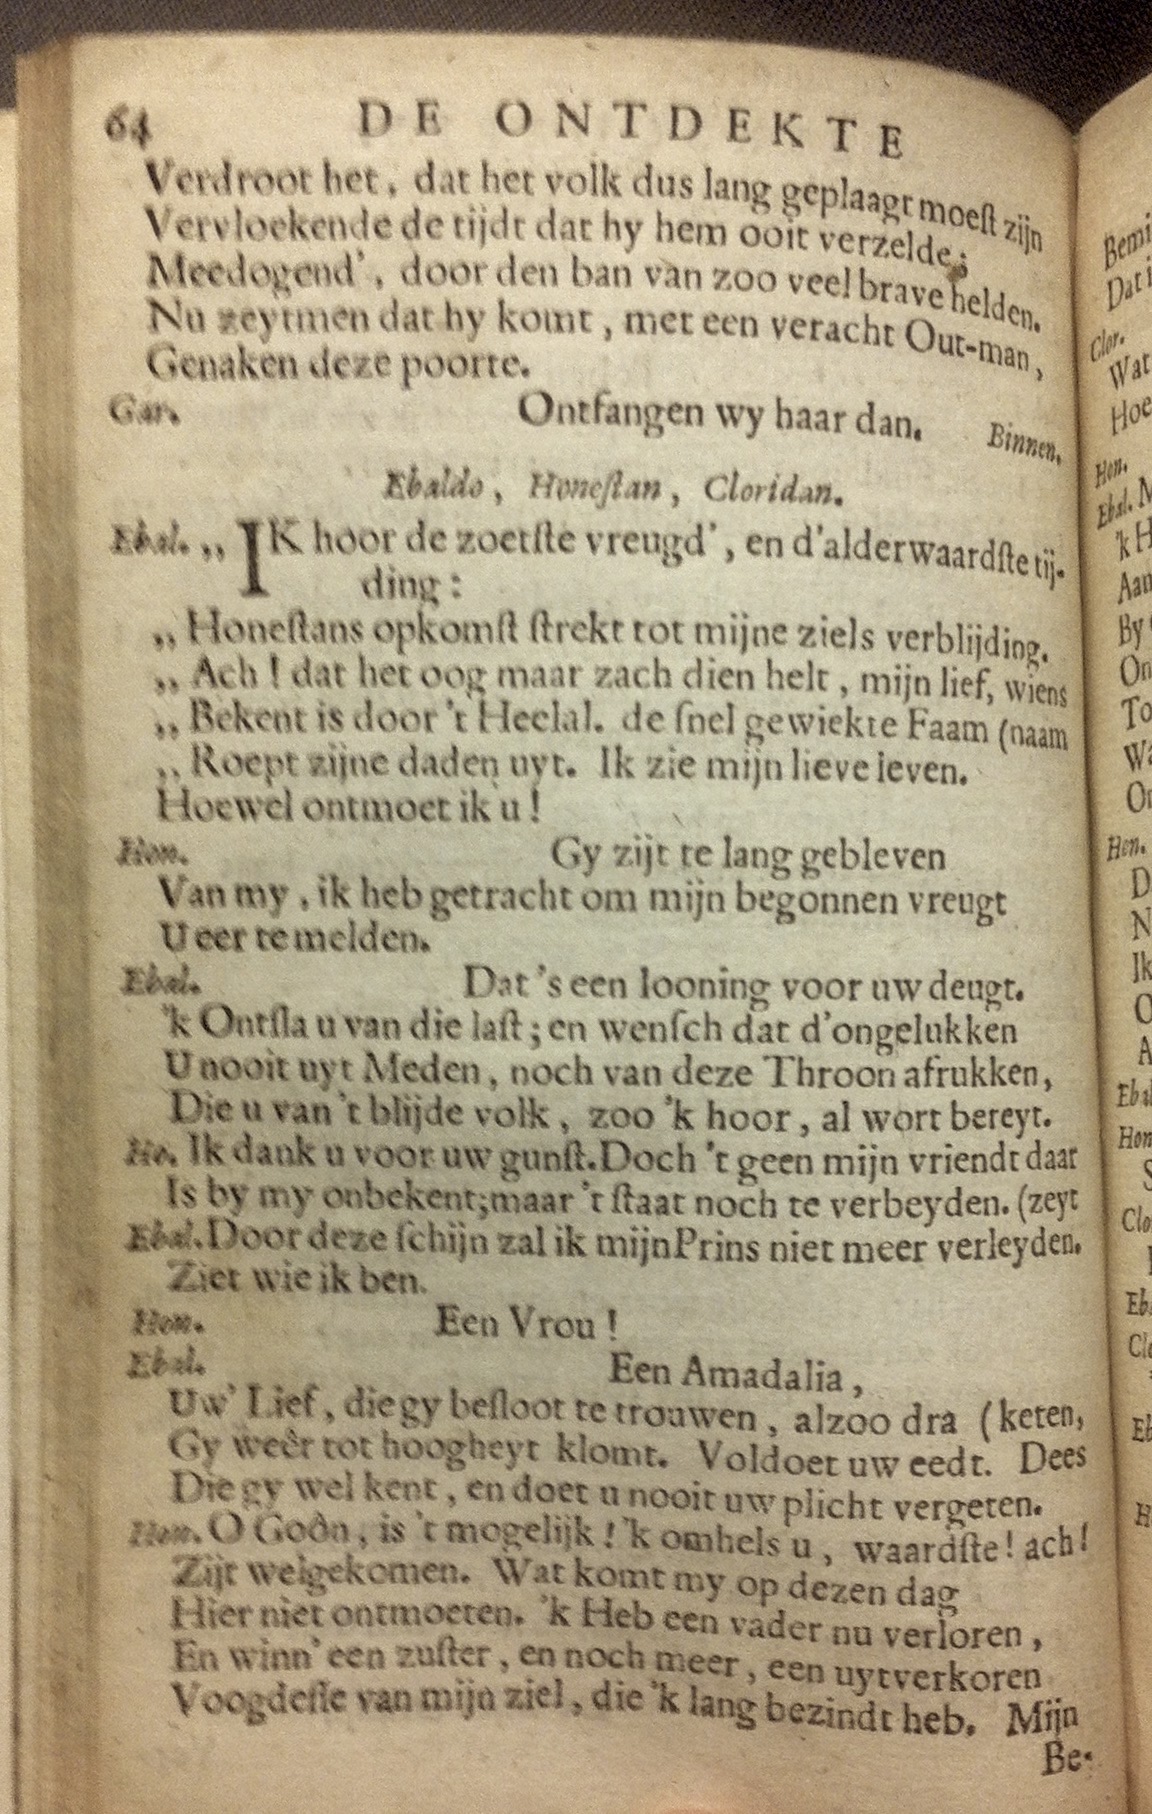 64 DE ONTDEKTE
Verdroot het, dat het volk dus lang geplaagt moeſt zijn
Vervloekende de tijdt dat hy hem ooit verzelde;
Meedogend', door den ban van zoo veel brave helden.
Nu zeytmen dat hy komt, met een veracht Out-man,
Genaken deze poorte.
Gar. Ontfangen wy haar dan. Binnen.
Ebaldo, Honeſtan, Cloridan.
Ebal. ,, IK hoor de zoetſte vreugd', en d'alderwaardſte tij-
ding:
,, Honeſtans opkomſt ſtrekt tot mijne ziels verblijding.
,, Ach! dat het oog maar zach dien helt, mijn lief, wiens
,, Bekent is door 't Heelal. de ſnel gewiekte Faam (naam
,, Roept zijne daden uyt. Ik zie mijn lieve leven.
Hoewel ontmoet ik u!
Hon. Gy zijt te lang gebleven
Van my, ik heb getracht om mijn begonnen vreugt
U eer te melden.
Ebal. Dat 's een looning voor uw deugt.
'k Ontſla u van die laſt; en wenſch dat d'ongelukken
U nooit uyt Meden, noch van deze Throon afrukken,
Die u van 't blijde volk, zoo 'k hoor, al wort bereyt.
Ho. Ik dank u voor uw gunſt. Doch 't geen mijn vriendt daar
Is by my onbekent; maar 't ſtaat noch te verbeyden. (zeyt
Ebal. Door deze ſchijn zal ik mijn Prins niet meer verleyden.
Ziet wie ik ben.
Hon. Een Vrou!
Ebal. Een Amadalia,
Uw' Lief, die gy beſloot te trouwen, alzoo dra (keten,
Gy weêr tot hoogheyt klomt. Voldoet uw eedt. Dees
Die gy wel kent, en doet u nooit uw plicht vergeten.
Hon. O Goôn, is 't mogelijk! 'k omhels u, waardſte! ach!
Zijt welgekomen. Wat komt my op dezen dag
Hier niet ontmoeten. 'k Heb een vader nu verloren,
En winn' een zuſter, en noch meer, een uytverkoren
Voogdeſſe van mijn ziel, die 'k lang bezindt heb. Mijn
Be-
Bemi
Dat i
Clor.
Wat
Hoe
Hon.
Ebal. M
'k H
Aan
By
On
To
Wa
On
Hen.
D
N
Ik
O
A
Ebal
Hon
S
Clo
Eb
Clo
Eb
H